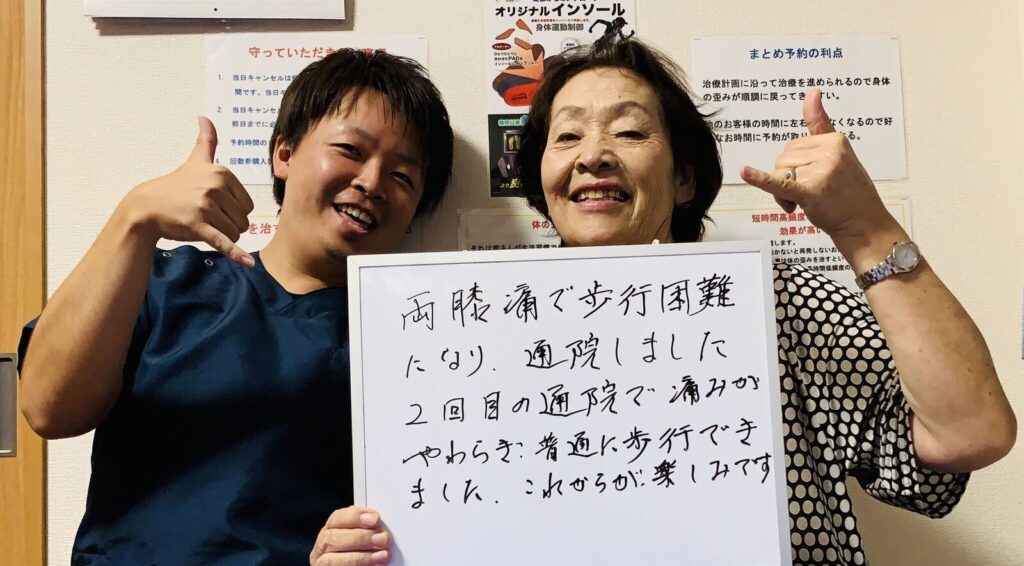 オリジナルインソール
身体運動制御
守っていただき
1. 当日キャンセルは
間です。当日キ
2. 当日キャンセル
前日までに必
予約時間の
4. 回数券購入
まとめ予約の利点
治療計画に沿って治療を進められるので身体
の歪みが順調に戻ってき
のお客様の時間に左右 なくなるので好
なお時間に予約が取り る。
を治す
体の
短時間高頻度
効果が高い
両膝痛で歩行困難
になり、通院しました
2回目の通院で痛みが
やわらぎ、普通に歩行でき
ました。これからが楽しみです